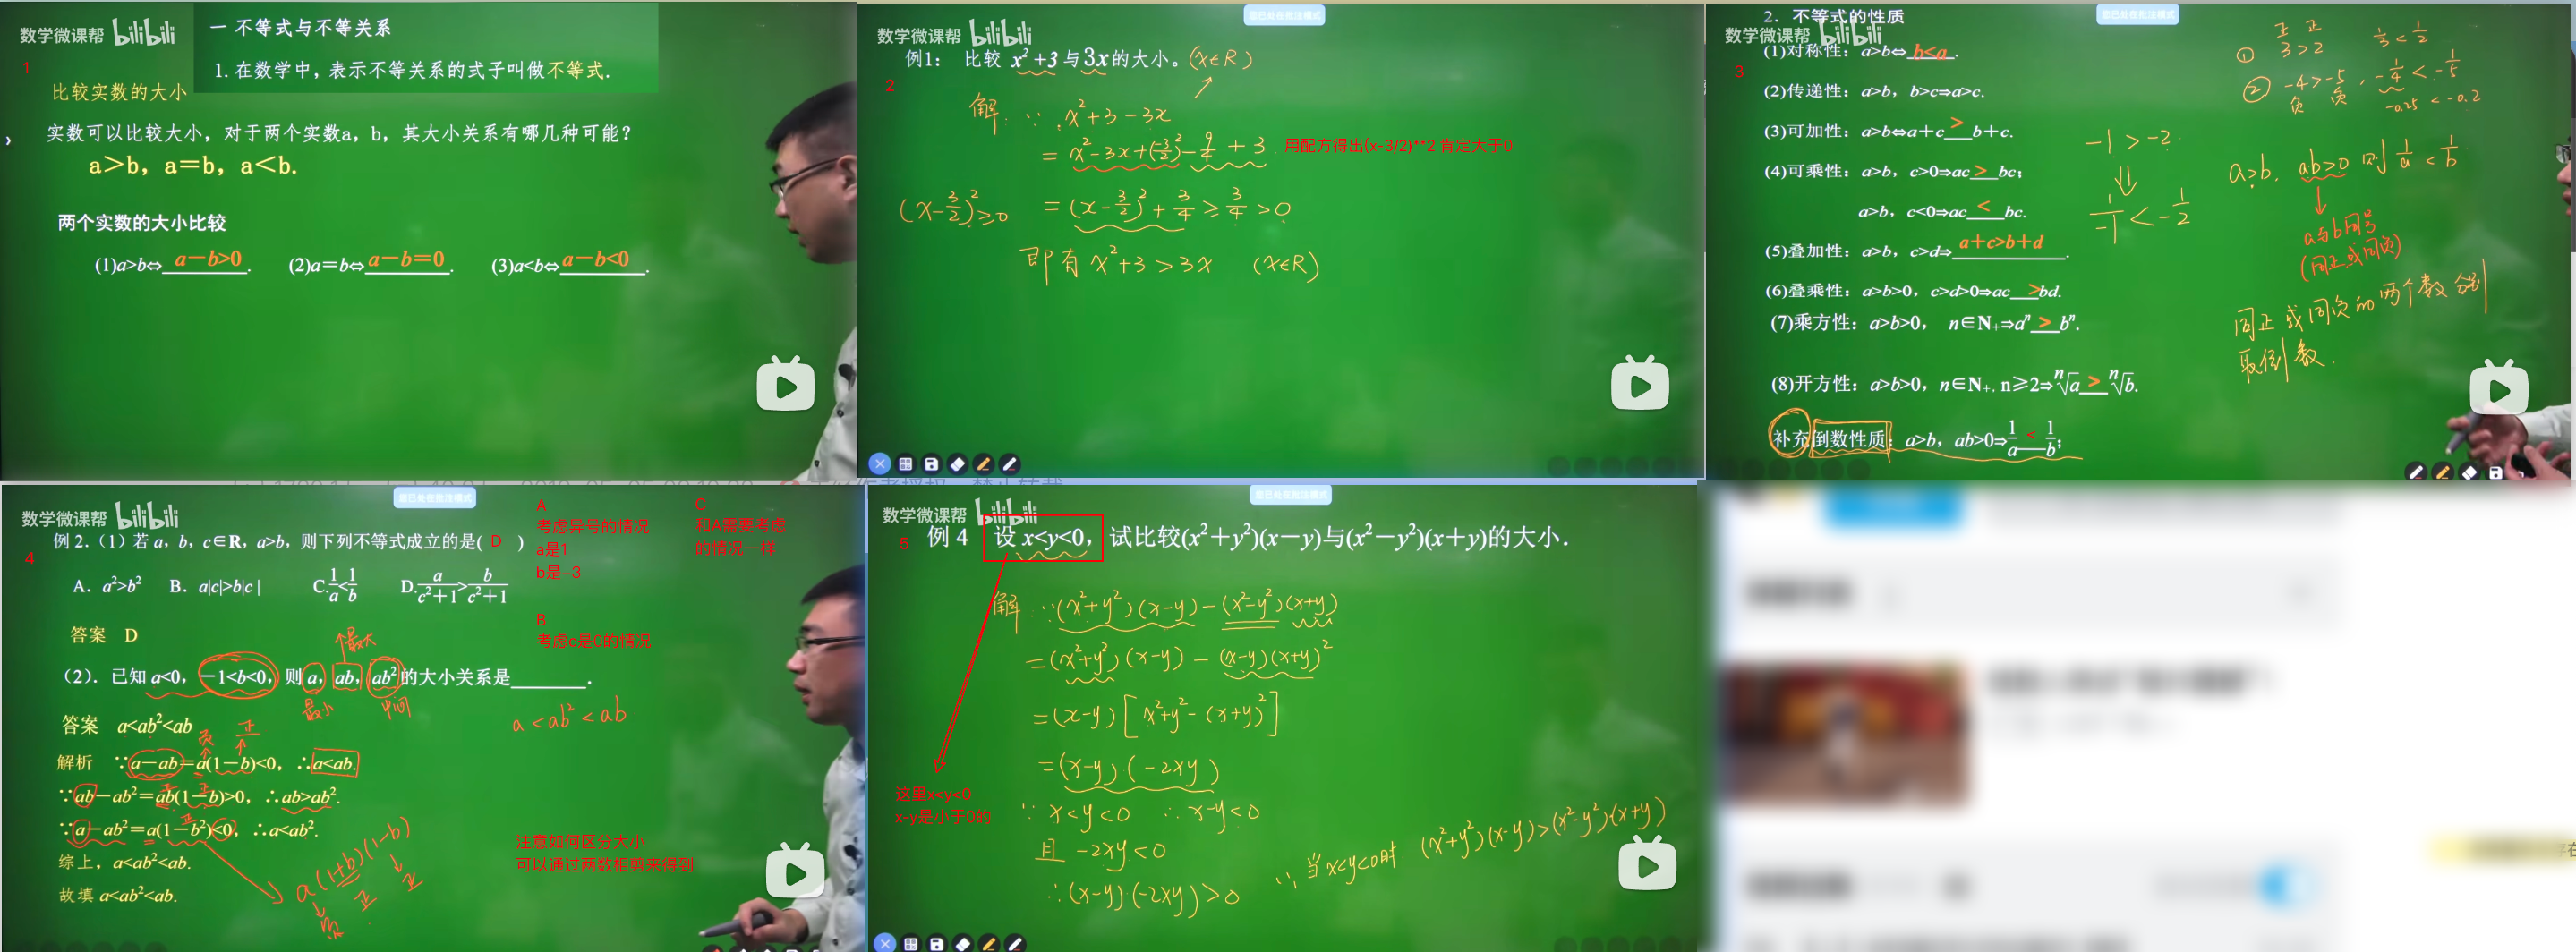 数学微课帮 bilibili
一 不等式与不等关系
1. 在数学中，表示不等关系的式子叫做不等式.
1
比较实数的大小
实数可以比较大小，对于两个实数a，b，其大小关系有哪几种可能？
a＞b，a＝b，a＜b.
两个实数的大小比较
(1)a>b⇔ a－b>0 . (2)a＝b⇔ a－b＝0 . (3)a<b⇔ a－b<0 .
您已处在批注模式
数学微课帮 bilibili
2
例1： 比较 x²+3 与 3x 的大小。(x∈R)
解 ∵ x²+3-3x
= x²-3x+(-3/2)²-9/4+3
用配方得出(x-3/2)**2 肯定大于0
(x-3/2)²≥0
= (x-3/2)²+3/4≥3/4>0
即有 x²+3>3x (x∈R)
您已处在批注模式
数学微课帮 bilibili
3
2．不等式的性质
(1)对称性：a>b⇔ b<a .
(2)传递性：a>b，b>c⇒a>c.
(3)可加性：a>b⇔a＋c > b＋c.
(4)可乘性：a>b，c>0⇒ac > bc；
a>b，c<0⇒ac < bc.
(5)叠加性：a>b，c>d⇒ a＋c>b＋d .
(6)叠乘性：a>b>0，c>d>0⇒ac > bd.
(7)乘方性：a>b>0， n∈N₊⇒aⁿ > bⁿ.
(8)开方性：a>b>0，n∈N₊, n≥2⇒ⁿ√a > ⁿ√b.
补充倒数性质：a>b，ab>0⇒1/a < 1/b；
正 正
① 3>2 1/3<1/2
② -4>-5 , -1/4<-1/5
负 负 -0.25<-0.2
-1>-2
⇓
1/-1<-1/2
a>b. ab>0 则 1/a<1/b
↓
a与b同号
(同正或同负)
同正或同负的两个数分别
取倒数.
您已处在批注模式
数学微课帮 bilibili
4
例 2．(1) 若 a，b，c∈R，a>b，则下列不等式成立的是( D )
A．a²>b² B．a|c|>b|c| C.1/a<1/b D.a/(c²+1)>b/(c²+1)
A
考虑异号的情况
a是1
b是-3
B
考虑c是0的情况
C
和A需要考虑
的情况一样
答案 D
↑最大
(2)．已知 a<0，－1<b<0，则 a，ab，ab²的大小关系是 .
最小 中间
a<ab²<ab
答案 a<ab²<ab
负 正
解析 ∵a－ab＝a(1－b)<0，∴a<ab.
正 正
∵ab－ab²＝ab(1－b)>0，∴ab>ab².
正
∵a－ab²＝a(1－b²)<0，∴a<ab².
综上，a<ab²<ab.
故填 a<ab²<ab.
a(1+b)(1-b)
负 正 正
注意如何区分大小
可以通过两数相剪来得到
您已处在批注模式
数学微课帮 bilibili
5
例 4 设 x<y<0， 试比较(x²＋y²)(x－y)与(x²－y²)(x＋y)的大小．
解 ∵(x²+y²)(x-y)-(x²-y²)(x+y)
=(x²+y²)(x-y)-(x-y)(x+y)²
=(x-y)[x²+y²-(x+y)²]
=(x-y)(-2xy)
这里x<y<0
x-y是小于0的
∵ x<y<0 ∴x-y<0
且 -2xy<0
∴(x-y)(-2xy)>0
∴ 当x<y<0时 (x²+y²)(x-y)>(x²-y²)(x+y)